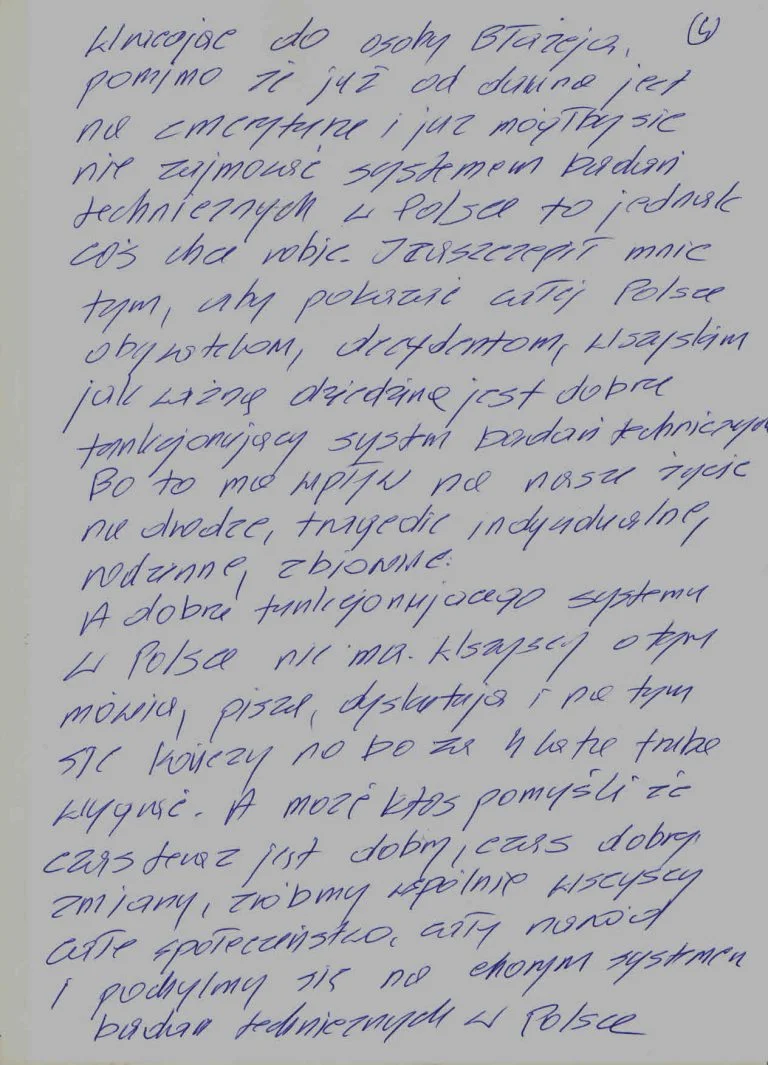 Wracając do osoby Błażeja, (4)
pomimo że już od dawna jest
na emeryturze i już mógłby się
nie zajmować systemem badań
technicznych w Polsce to jednak
coś chce robić. I zaszczepił mnie
tym, aby pokazać całej Polsce
obywatelom, decydentom, wszyskim
jak ważną dziedziną jest dobrze
funkcjonujący systm badań technicznych
Bo to ma wpływ na nasze życie
na drodze, tragedie indywidualne,
rodzinne, zbiorowe.
A dobrze funkcjonującego systemu
w Polsce nie ma. Wszyscy o tym
mówią, piszą, dyskutują i na tym
się kończy no bo za 4 lata trzeba
wygrać. A może ktoś pomyśli że
czas teraz jest dobry, czas dobrej
zmiany, zróbmy wspólnie wszyscy
całe społeczeństwo, cały naród
i pochylmy się na chorym systemem
badań technicznych w Polsce